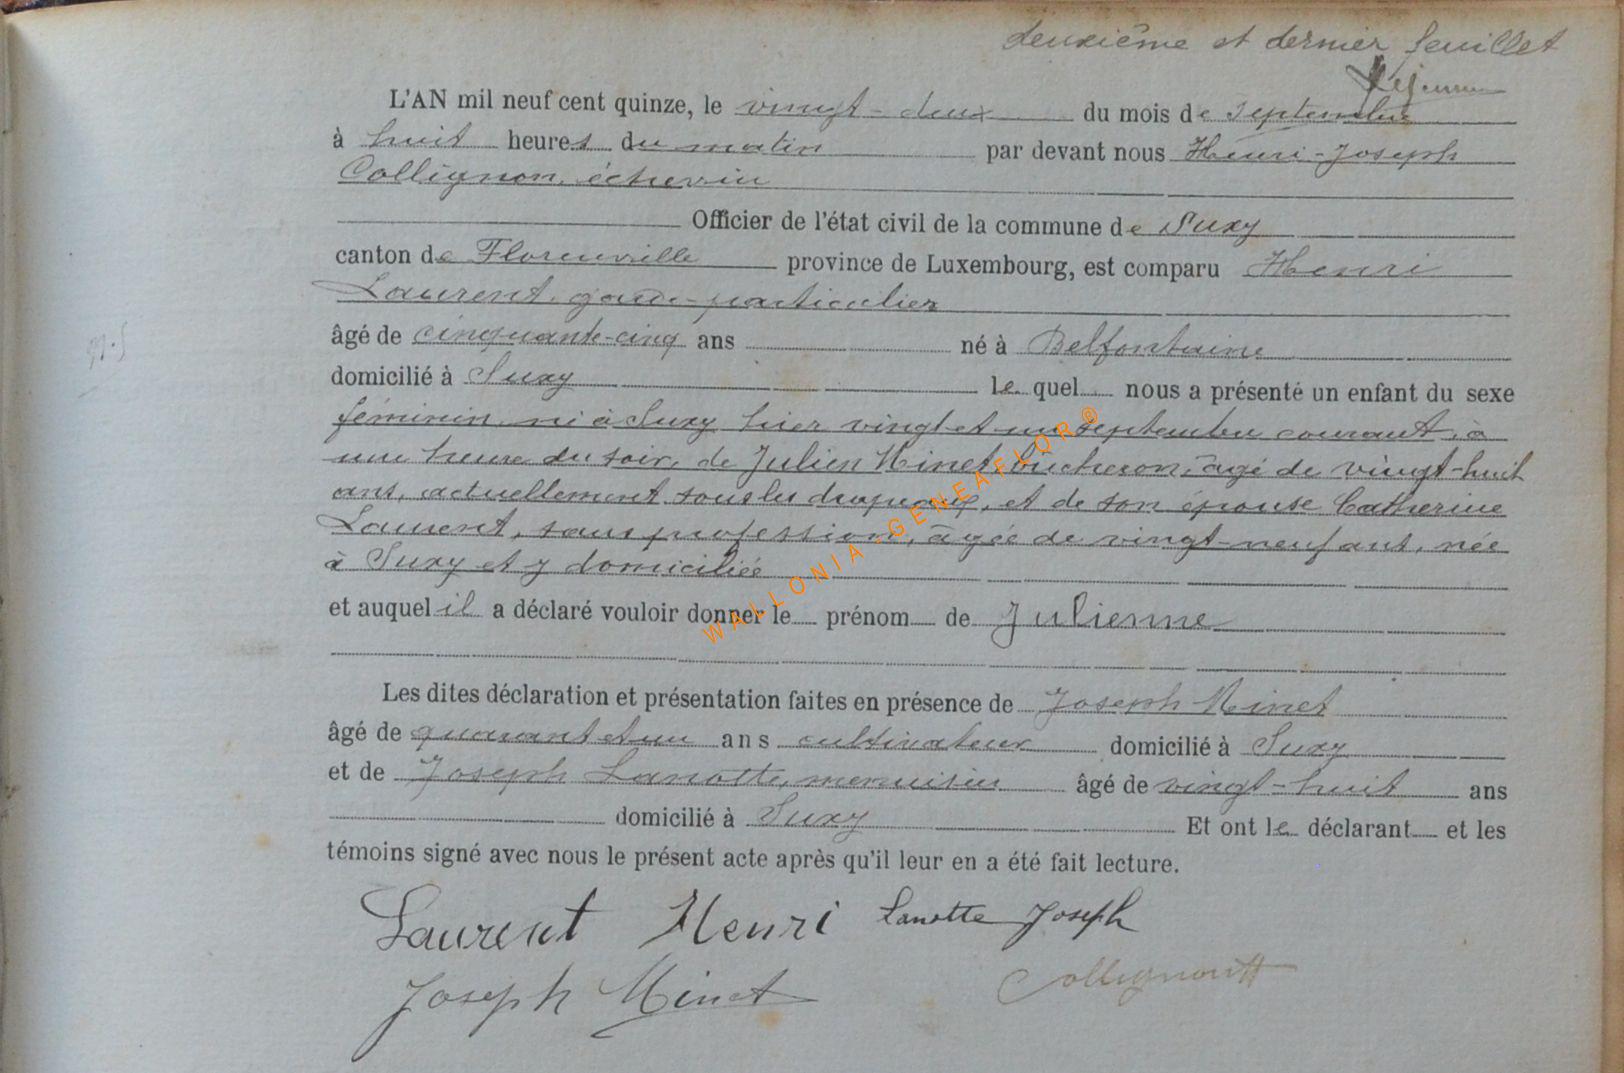 deuxième et dernier feuillet
L'AN mil neuf cent quinze, le vingt-deux du mois de septembre
à huit heures du matin par devant nous Henri-Joseph
Collignon, échevin
Officier de l'état civil de la commune de Suxy
canton de Florenville province de Luxembourg, est comparu Henri
Laurent, garde-particulier
âgé de cinquante-cinq ans né à Belfontaine
domicilié à Suxy le quel nous a présenté un enfant du sexe
féminin né à Suxy hier vingt et un septembre courant, à
une heure du soir, de Julien Minet, bûcheron, âgé de vingt-huit
ans, actuellement sous les drapeaux, et de son épouse Catherine
Laurent, sans profession, âgée de vingt-neuf ans, née
à Suxy et y domiciliée
et auquel il a déclaré vouloir donner le prénom de Julienne
Les dites déclaration et présentation faites en présence de Joseph Minet
âgé de quarant et un ans cultivateur domicilié à Suxy
et de Joseph Lanotte, menuisier âgé de vingt-huit ans
domicilié à Suxy Et ont le déclarant et les
témoins signé avec nous le présent acte après qu'il leur en a été fait lecture.
Laurent Henri Lanotte Joseph
Joseph Minet Collignon
WALLONIA-GENEAFLOR®